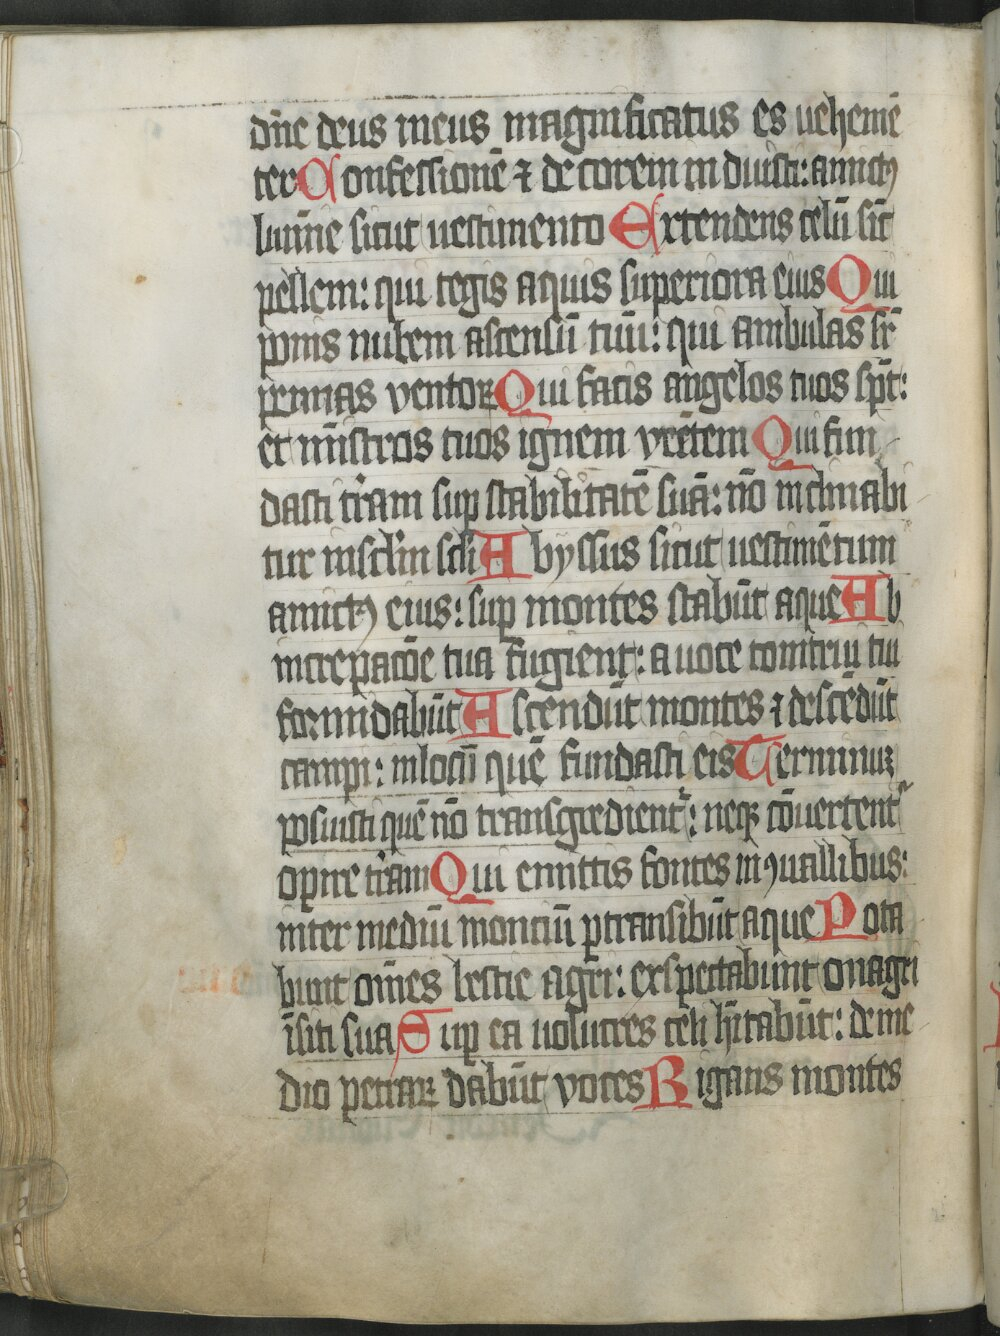 dn̄e deus meus magnificatus es uehemē
ter Confessionē ⁊ decorem induisti: amictꝰ
lumīe sicut uestimento Extendens celū sic̄
pellem: qui tegis aquis superiora eius Qui
ponis nubem ascensū tuū: qui ambulas sr̄
pennas ventoꝝ Qui facis angelos tuos sp̄c:
et mīstros tuos ignem vrētem Qui fun
dasti tr̄am suꝑ stabilitatē suā: nō inclinabi
tur in sc̄lm sc̄li Abyssus sicut uestimētum
amictꝰ eius: suꝑ montes stabūt aque Ab
increpacōe tua fugient: a uoce tonitrui tui
formidabūt Ascendūt montes ⁊ descēdūt
campi: in locū quē fundasti eis Terminuꝫ
posuisti quē nō transgredient᷑: neqꝫ cōuertent᷑
opire tr̄am Qui emittis fontes in ꝯuallibus:
inter mediū monciū ꝑtransibūt aque Pota
bunt om̄es bestie agri: exspectabunt onagri
ī siti sua Suꝑ ea uolucres celi hītabūt: de me
dio petraꝝ dabūt voces Rigans montes